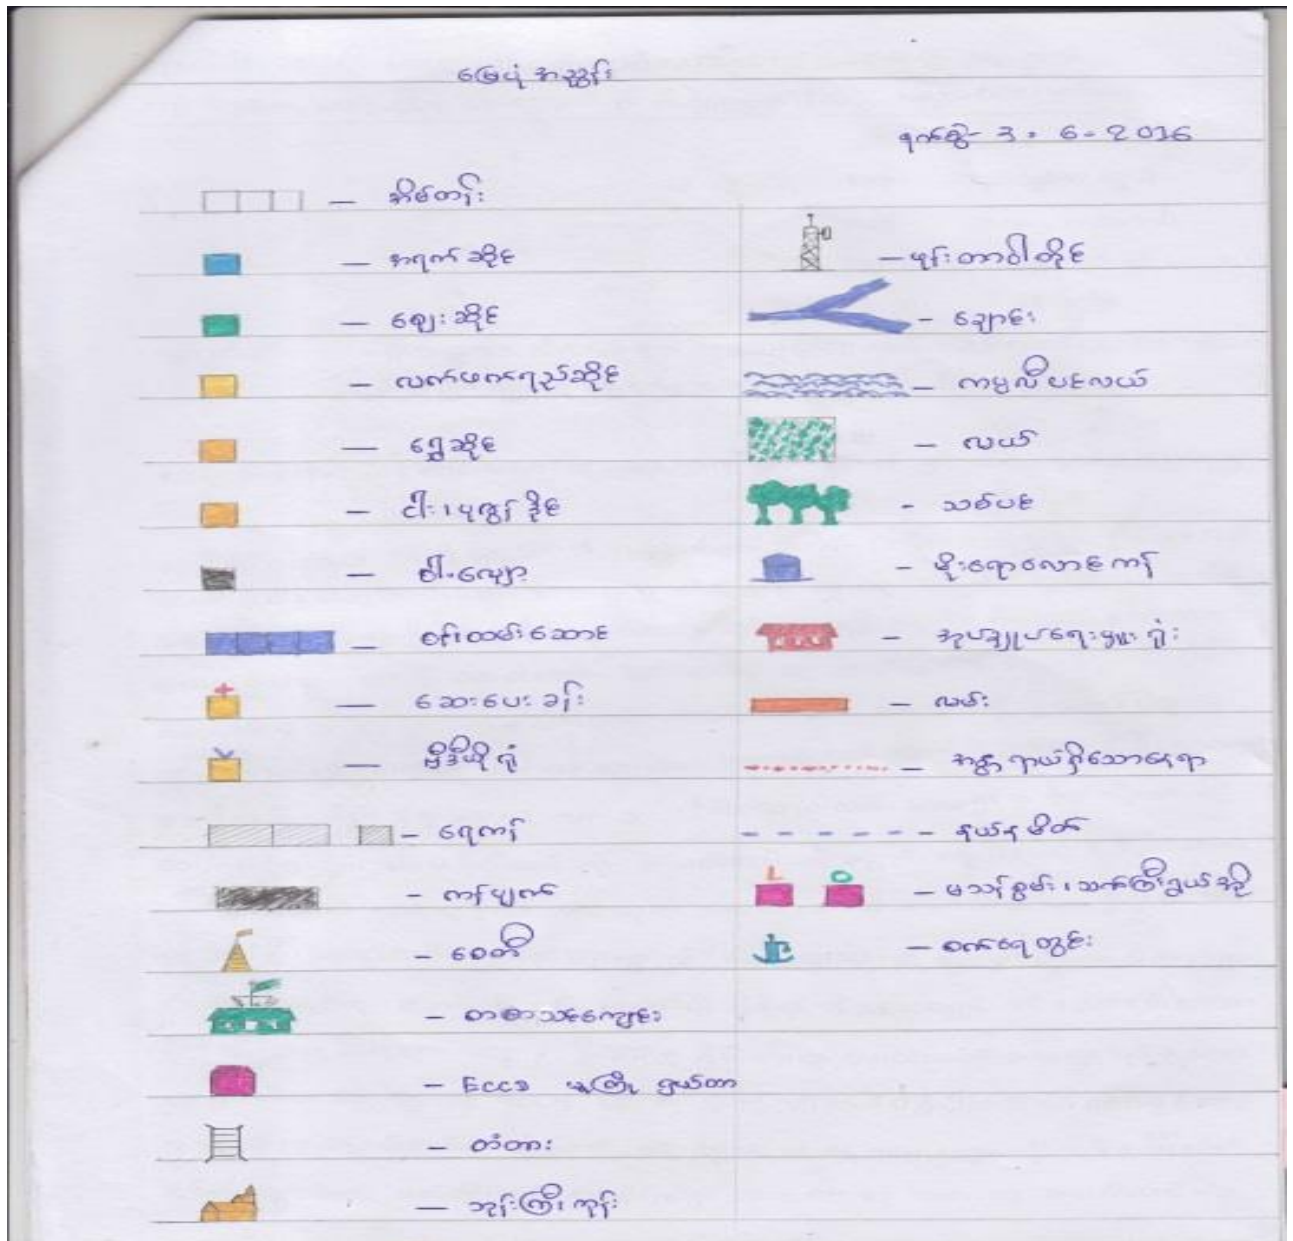 မြေပုံ အညွှန်း
ရက်စွဲ- 3 - 6 - 2016
— အိမ်တန်း
— အရက်ဆိုင်
— ဈေးဆိုင်
— လက်ဖက်ရည်ဆိုင်
— ရွှေဆိုင်
— ငါး၊ပုဇွန်ဒိုင်
— ဝါးလျှော
— စင်္ဝထမ်းဆောင်
— ဆေးပေးခန်း
— ဗွီဒီယိုရုံ
— ရေကန်
- ကန်ပျက်
- စေတီ
- စာသင်ကျောင်း
- Eccd မူကြို
- တံတား
— ဘုန်းကြီးကျောင်း
— ဖုန်းတာဝါတိုင်
- ချောင်း
- ကပ္ပလီပင်လယ်
- လယ်
- သစ်ပင်
- မိုးရေလှောင်ကန်
- အုပ်ချုပ်ရေးမှူးရုံး
- လမ်း
- အန္တရာယ်ရှိသောနေရာ
- နယ်နမိတ်
- မသန်စွမ်း၊သက်ကြီးရွယ်အို
- စက်ရေတွင်း